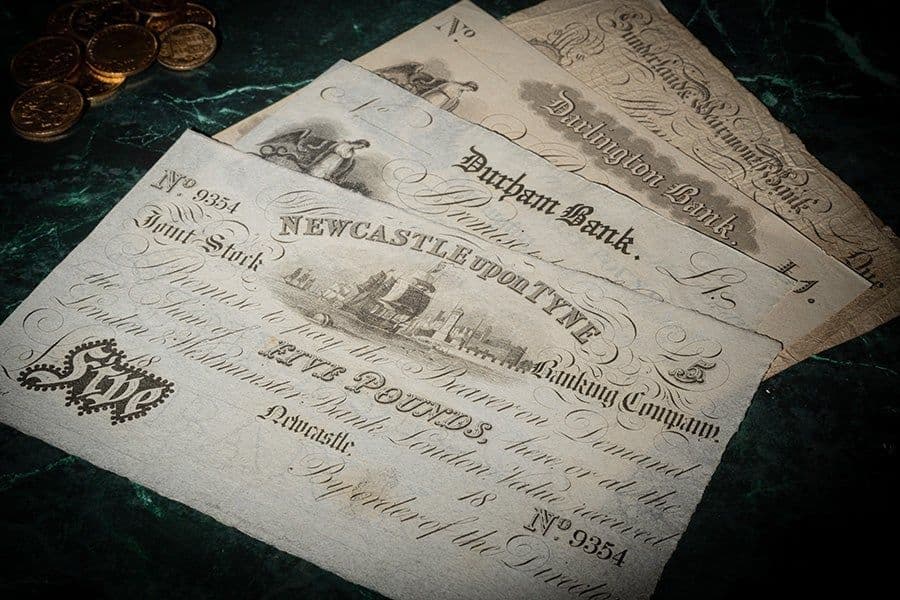 No 9354
NEWCASTLE upon TYNE
Joint Stock
Banking Company.
£5
Promise to pay the Bearer on Demand
the Sum of FIVE POUNDS, here or at the
London & Westminster Bank London, Value received
Five
Newcastle, 18
No 9354
By order of the
No
Durham Bank.
Promise
No
Darlington Bank.
Sunderland & Wearmouth Bank